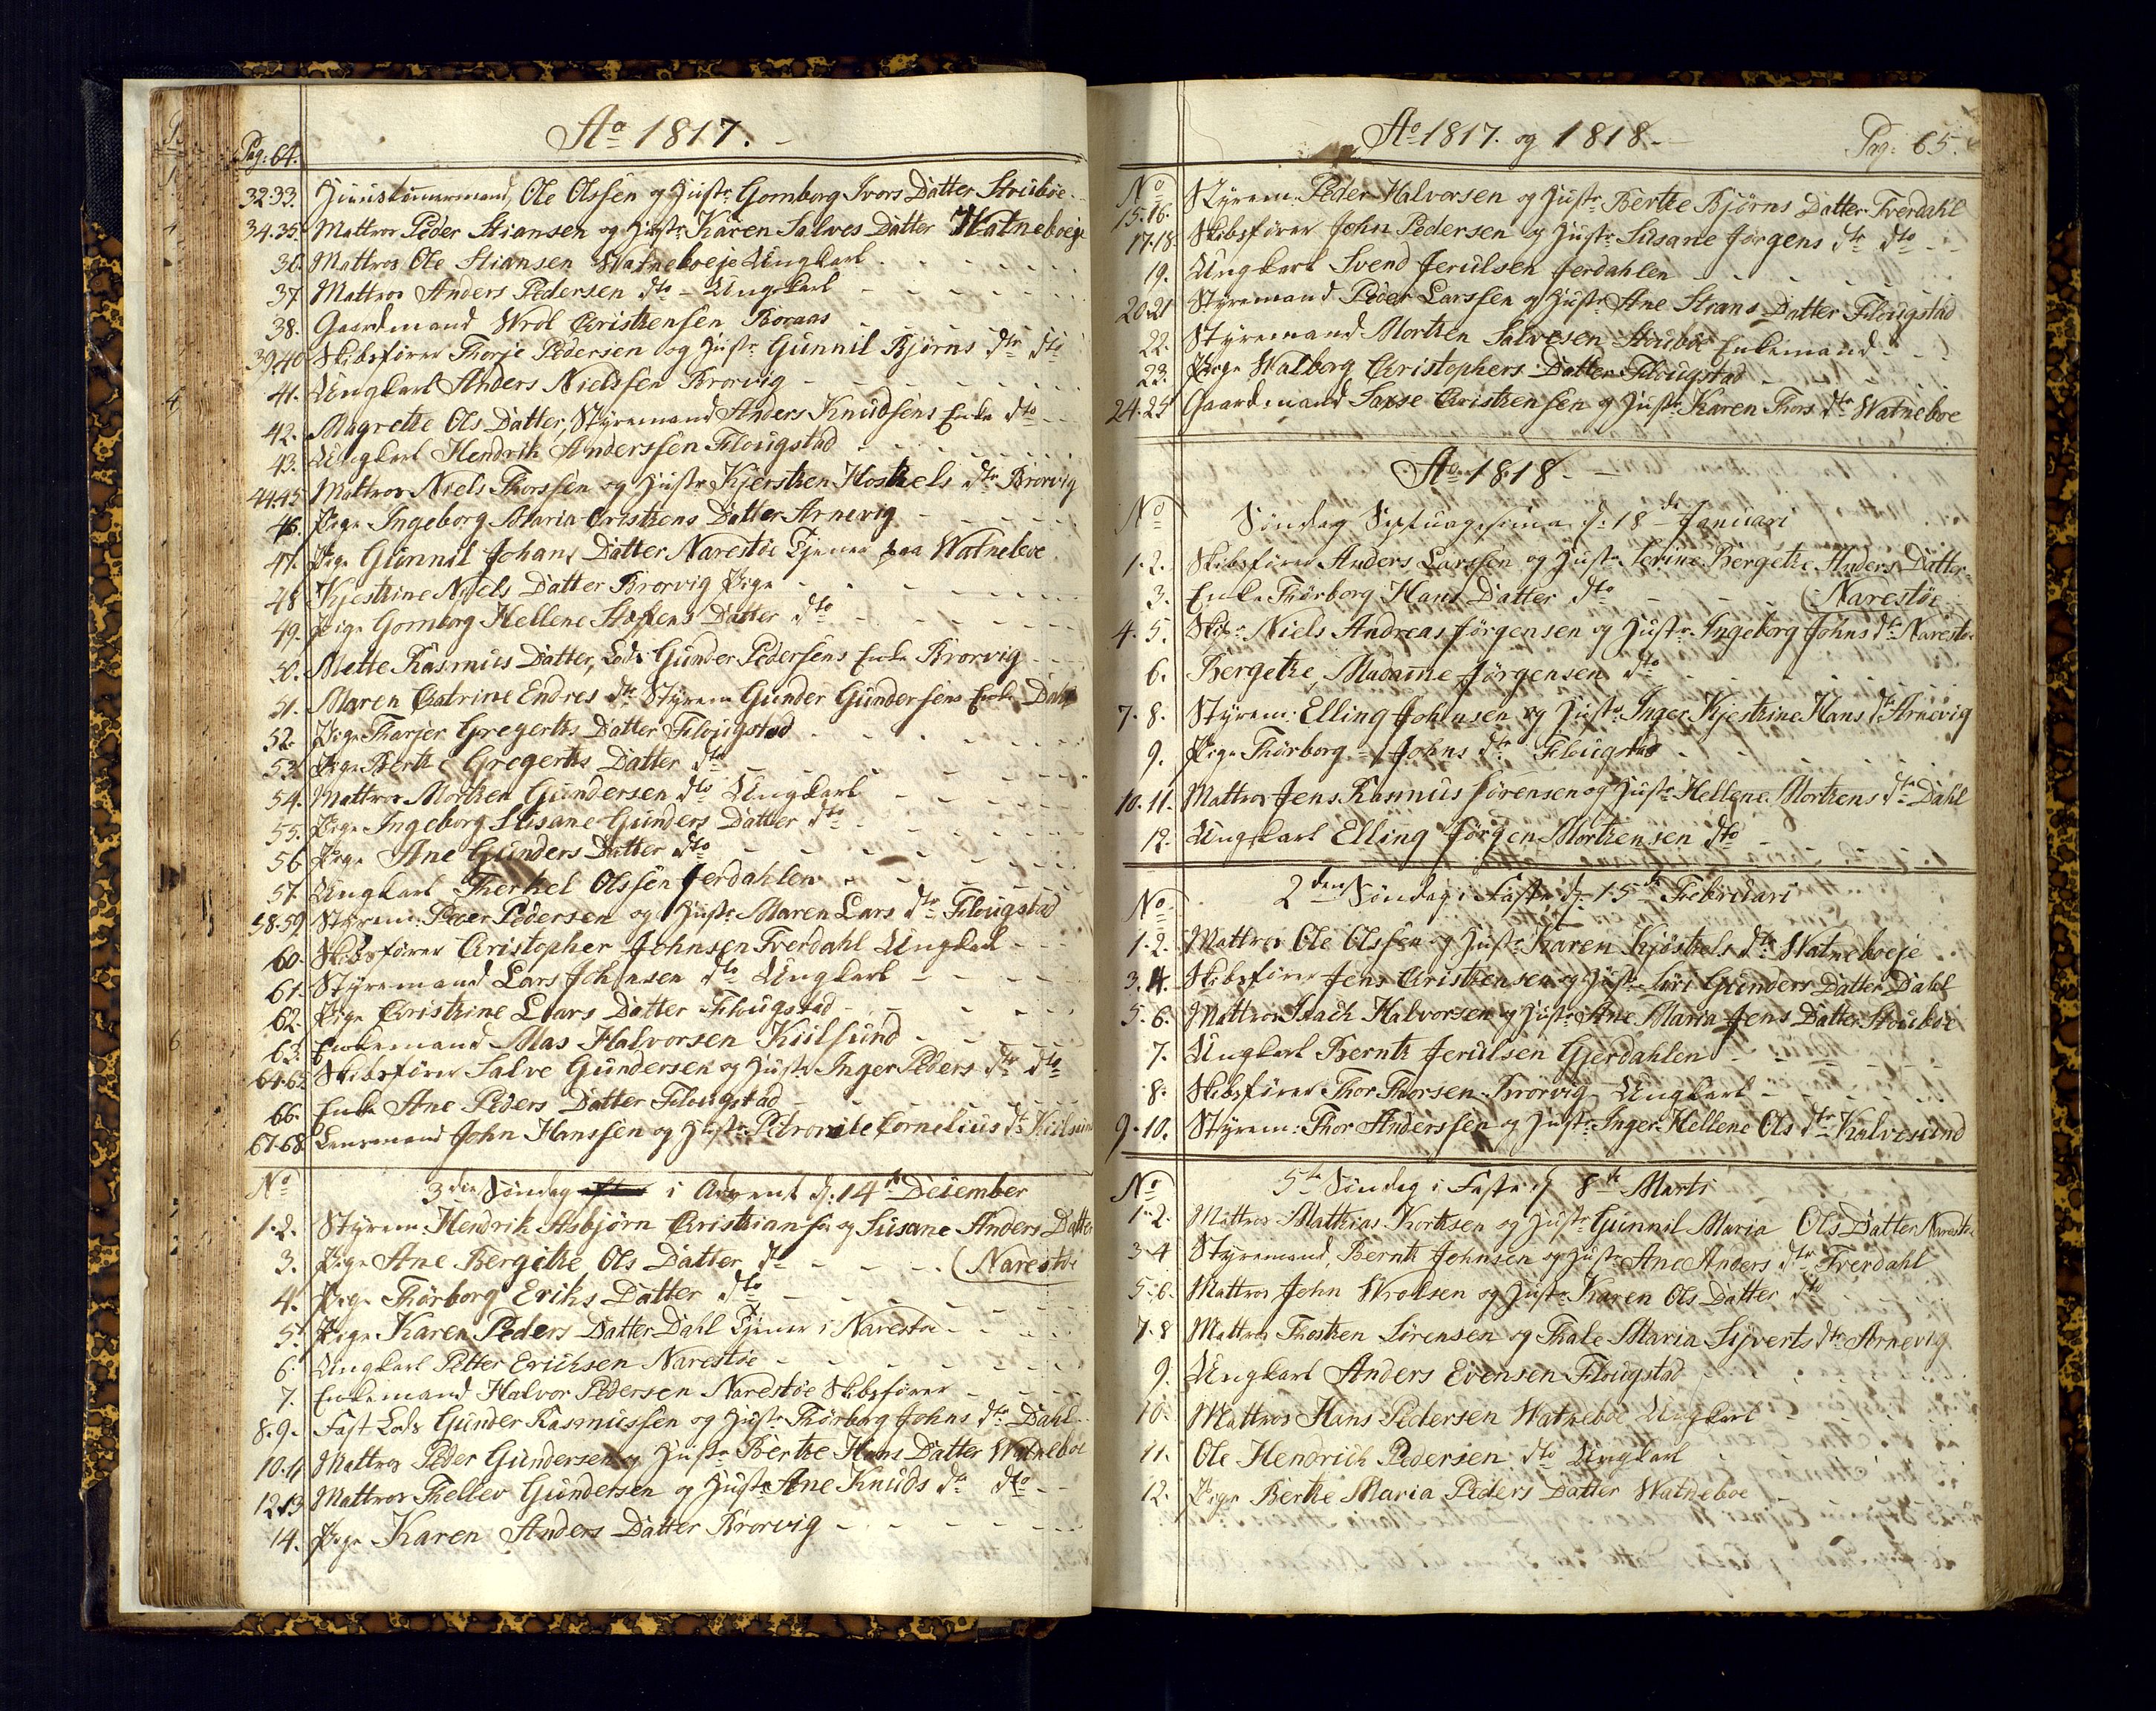 Pag: 64.
Ao 1817. -
32.33. Huustømmermand, Ole Olssen og Hustr: Gomborg Ivors Datter Strüböe.
34.35. Mattros Peder Stiansen og Hustr: Karen Salves Datter Watneboeje
36. Mattros Ole Stiansen Watneboeje Ungkarl
37 Mattros Anders Pedersen dto - Ungkarl
38. Gaardmand Wrol Christensen Boraas
39.40 Skibsfører Thorje Pedersen og Hustr: Gunnil Bjørns dtr dto
41. Ungkarl Anders Nielssen Brorvig
42. Magrethe Ols Datter, Styremand Anders Knudsens Enke dto
43. Ungkarl Hendrik Anderssen Flougstad
44.45 Mattros Niels Thorssen og Hustr: Kjersten Kostkels dtr Brorvig
46. Pige Ingeborg Maria Cristens Datter Arnevig
47. Pige Gunnil Johans Datter Narestøe Tjener paa Watneboe
48 Kjestrine Niels Datter Brorvig Pige
49. Pige Gomborg Hellene Staffens Datter dto
50. Mette Rasmus Datter, Lods Gunder Pedersens Enke Brorvig
51. Maren Catrine Endres dtr Styrem Gunder Gundersens Enke Dahl
52. Pige Tharjer Gregerths Datter Flougstad
53. Pige Berthe Gregerths Datter dto
54. Mattros Morthen Gundersen dto Ungkarl
55. Pige Ingeborg Susane Gunders Datter dto
56 Pige Ane Gunders Datter dto
57. Ungkarl Therkel Olssen Jerdahlen
58.59 Styrem: Peder Pedersen og Hustr: Maren Lars dtr Flougstad
60. Skibsfører Cristopher Johnsen Tverdahl Ungkarl
61. Styremand Lars Johnsen dto Ungkarl
62. Pige Cristine Lars Datter Flougstad
63. Enkemand Mas Halvorsen Kiilsund
64.65 Skibsfører Salve Gundersen og Hustr: Inger Peders dtr dto
66. Enke Ane Peders Datter Flougstad
67-68. Lensmand John Hanssen og Hustr: Petronile Cornelius dtr Kiilsund
No 3die Søndag i Advent d: 14de December
1.2. Styrem: Hendrik Asbjørn Cristiansen og Susane Anders Datter
3. Pige Ane Bergithe Ols Datter dto (Narestøe
4. Pige Thorborg Eriks Datter dto
5. Pige Karen Peders Datter Dahl Tjener i Narestøe
6. Ungkarl Petter Erichsen Narestøe
7. Enkemand Halvor Pedersen Narestøe Skibsfører
8.9. Fast Lods Gunder Rasmussen og Hustr: Thorborg Johns dtr Dahl
10.11 Mattros Peder Gundersen og Hustr: Berthe Hans Datter Watneboe
12.13 Mattros Thellev Gundersen og Hustr: Ane Knuds dtr dto
14. Pige Karen Anders Datter Brorvig
Ao 1817. og 1818 - Pag: 65.
No
15.16. Styrem: Peder Halvorsen og Hustr: Berthe Bjørns Datter Tverdahl
17.18. Skibsfører John Pedersen og Hustr: Susane Jørgens dtr dto
19. Ungkarl Svend Jerulsen Jerdahlen
20.21 Styremand Peder Larssen og Hustr: Ane Strans Datter Flougstad
22. Styremand Morthen Salvesen Strüböe Enkemand
23. Pige Walborg Cristophers Datter Flougstad
24.25 Gaardmand Saxse Cristensen og Hustr: Karen Thors dtr Watneboe
Ao 1818. -
No Søndag Septuagesima d: 18de Januari
1.2. Skibsfører Anders Larssen og Hustr: Serine Bergethe Anders Datter
3. Enke Thorborg Hans Datter dto (Narestøe
4.5. Skipr: Niels Andreas Jørgensen og Hustr: Ingeborg Johns dtr Narestøe
6. Bergethe, Madamme Jørgensen dto
7.8. Styrem: Elling Johnsen og Hustr: Inger Kjestrine Hans dtr Arnevig
9. Pige Thorborg Johns dtr Flougstad
10.11. Mattros Jens Rasmus Sørensen og Hustr: Hellene Morthens dtr Dahl
12. Ungkarl Elling Jørgen Morthensen dto
No 2den Søndag i Faste d: 15de Februari
1.2. Mattros Ole Olssen og Hustr: Karen Kjøstels dtr Watneboeje
3.4. Skibsfører Jens Cristensen og Hustr: Siri Gunders Datter Dahl
5.6. Mattros Isach Halvorsen og Hustr: Ane Maria Jens Datter Strüböe
7. Ungkarl Bernth Jerulsen Gjerdahlen
8. Skibsfører Thor Thorsen Brorvig Ungkarl
9.10. Styrem: Thor Anderssen og Hustr: Inger Hellene Ols dtr Kalvesund
No 5te Søndag i Faste d 8de Marts
1.2. Mattros Mathias Korthsen og Hustr: Gunnil Maria Ols Datter Narestøe
3.4 Styremand, Bernth Johnsen og Hustr: Ane Anders dtr Tverdahl
5.6. Mattros John Wrolsen og Hustr: Karen Ols Datter dto
7.8 Mattros Thosten Sørensen og Thale Maria Syverts dtr Arnevig
9. Ungkarl Anders Evensen Flougstad
10. Mattros Hans Pedersen Watneboe Ungkarl
11. Ole Hendrich Pedersen dto Ungkarl
12. Pige Berthe Maria Peders Datter Watneboe